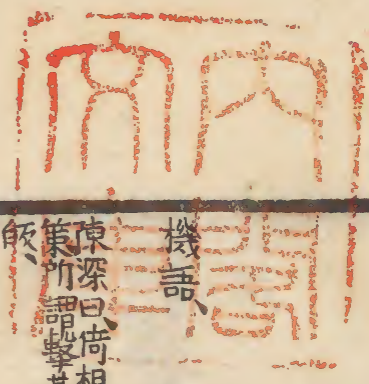 機語、
陳深曰倚相
策所謂擊其
皈、